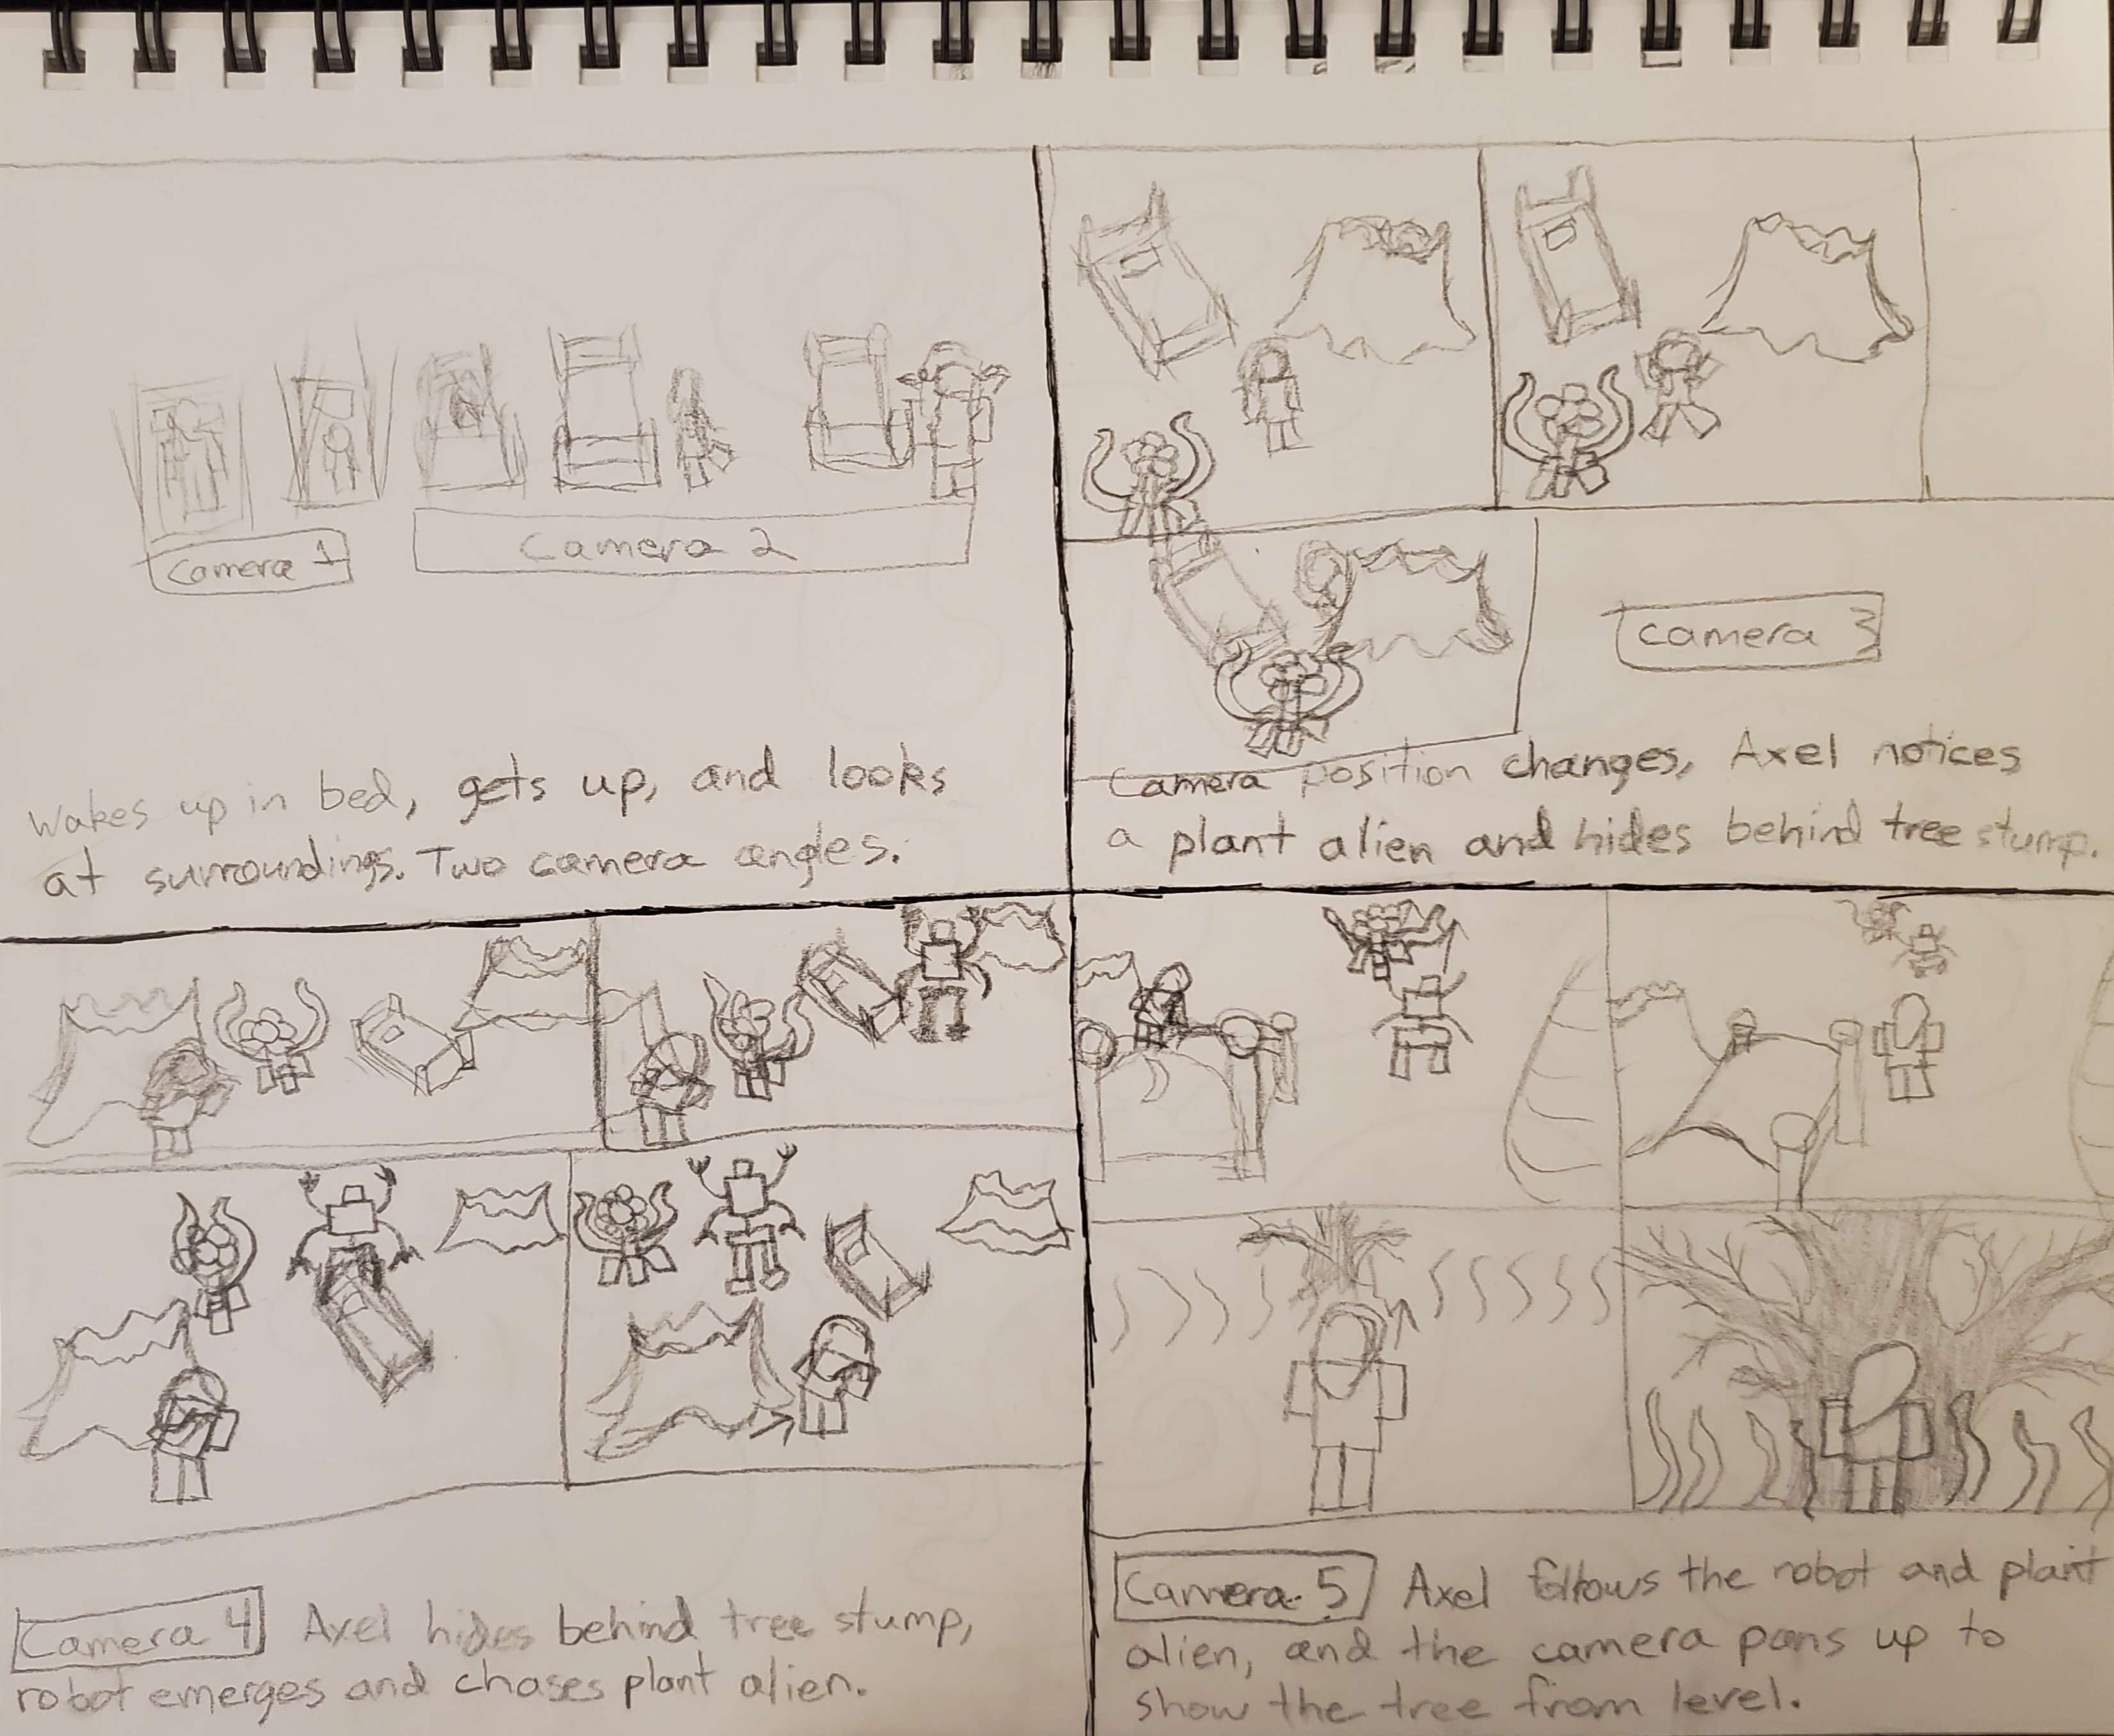 Camera 1
Camera 2
Wakes up in bed, gets up, and looks
at surroundings. Two camera angles.
Camera 3
Camera position changes, Axel notices
a plant alien and hides behind tree stump.
Camera 4 Axel hides behind tree stump,
robot emerges and chases plant alien.
Camera 5 Axel follows the robot and plant
alien, and the camera pans up to
show the tree from level.